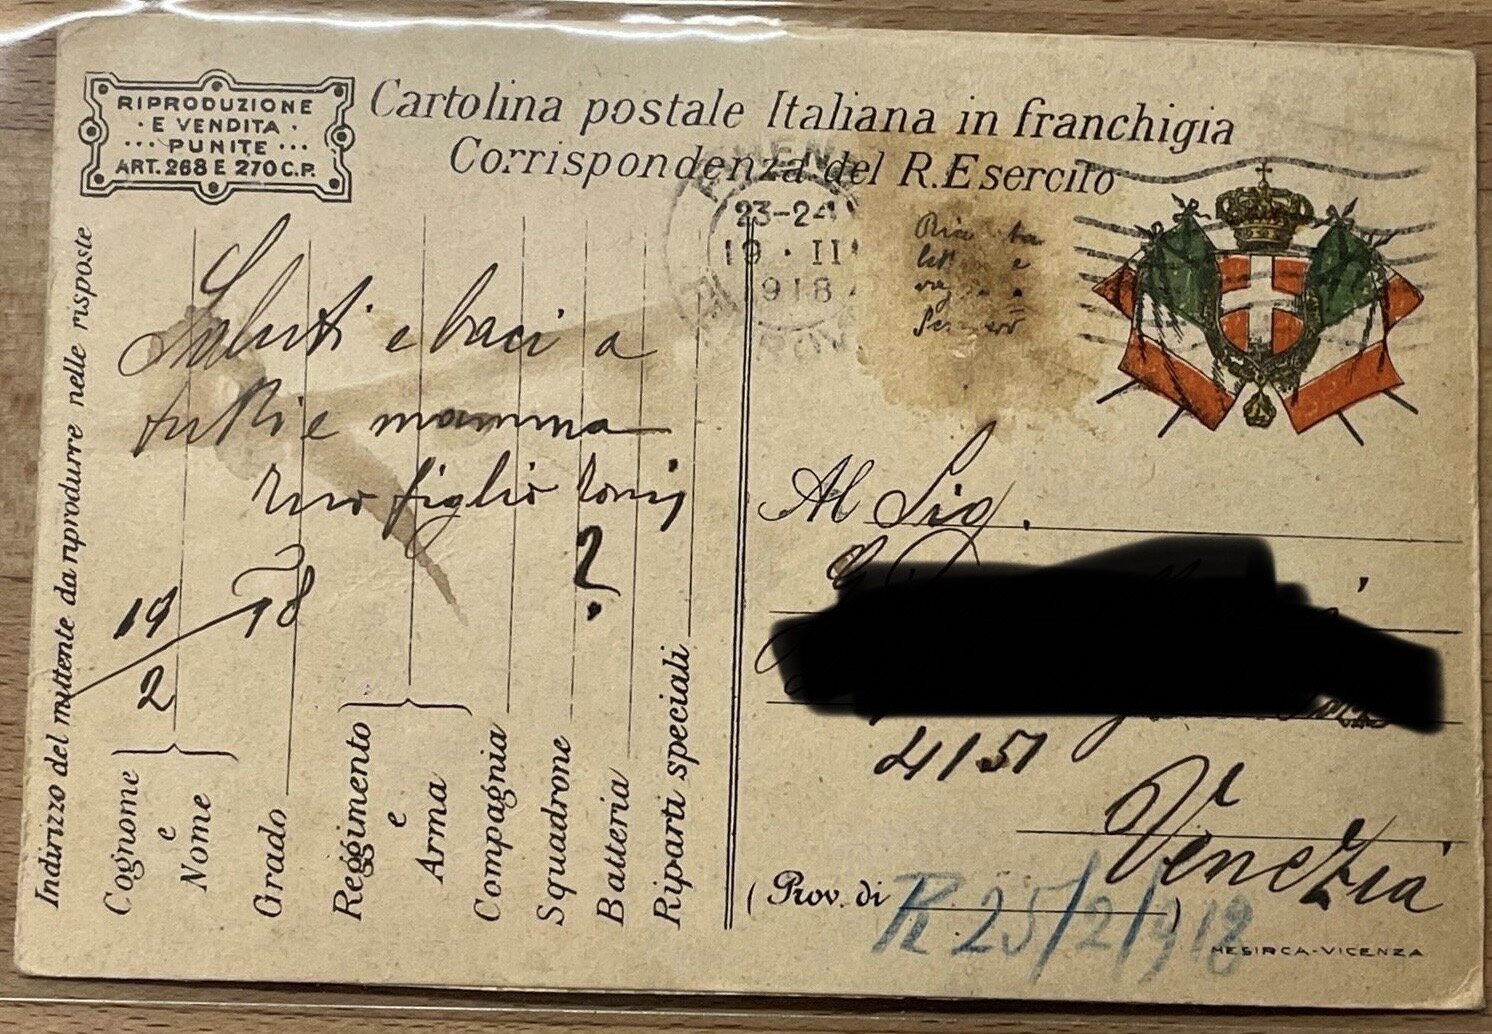 RIPRODUZIONE
· E VENDITA ·
··· PUNITE ···
ART. 268 E 270 C.P.
Cartolina postale Italiana in franchigia
Corrispondenza del R. Esercito
23-24
19 · II
1918
Saluti e baci a
tutti e mamma
figlio
?
19/2 78
Indirizzo del mittente da riprodurre nelle risposte
Cognome
e
Nome
Grado
Reggimento
e
Arma
Compagnia
Squadrone
Batteria
Riparti speciali
Al Sig.
4151
Venezia
(Prov. di )
R 25/2/918
MESIRCA-VICENZA